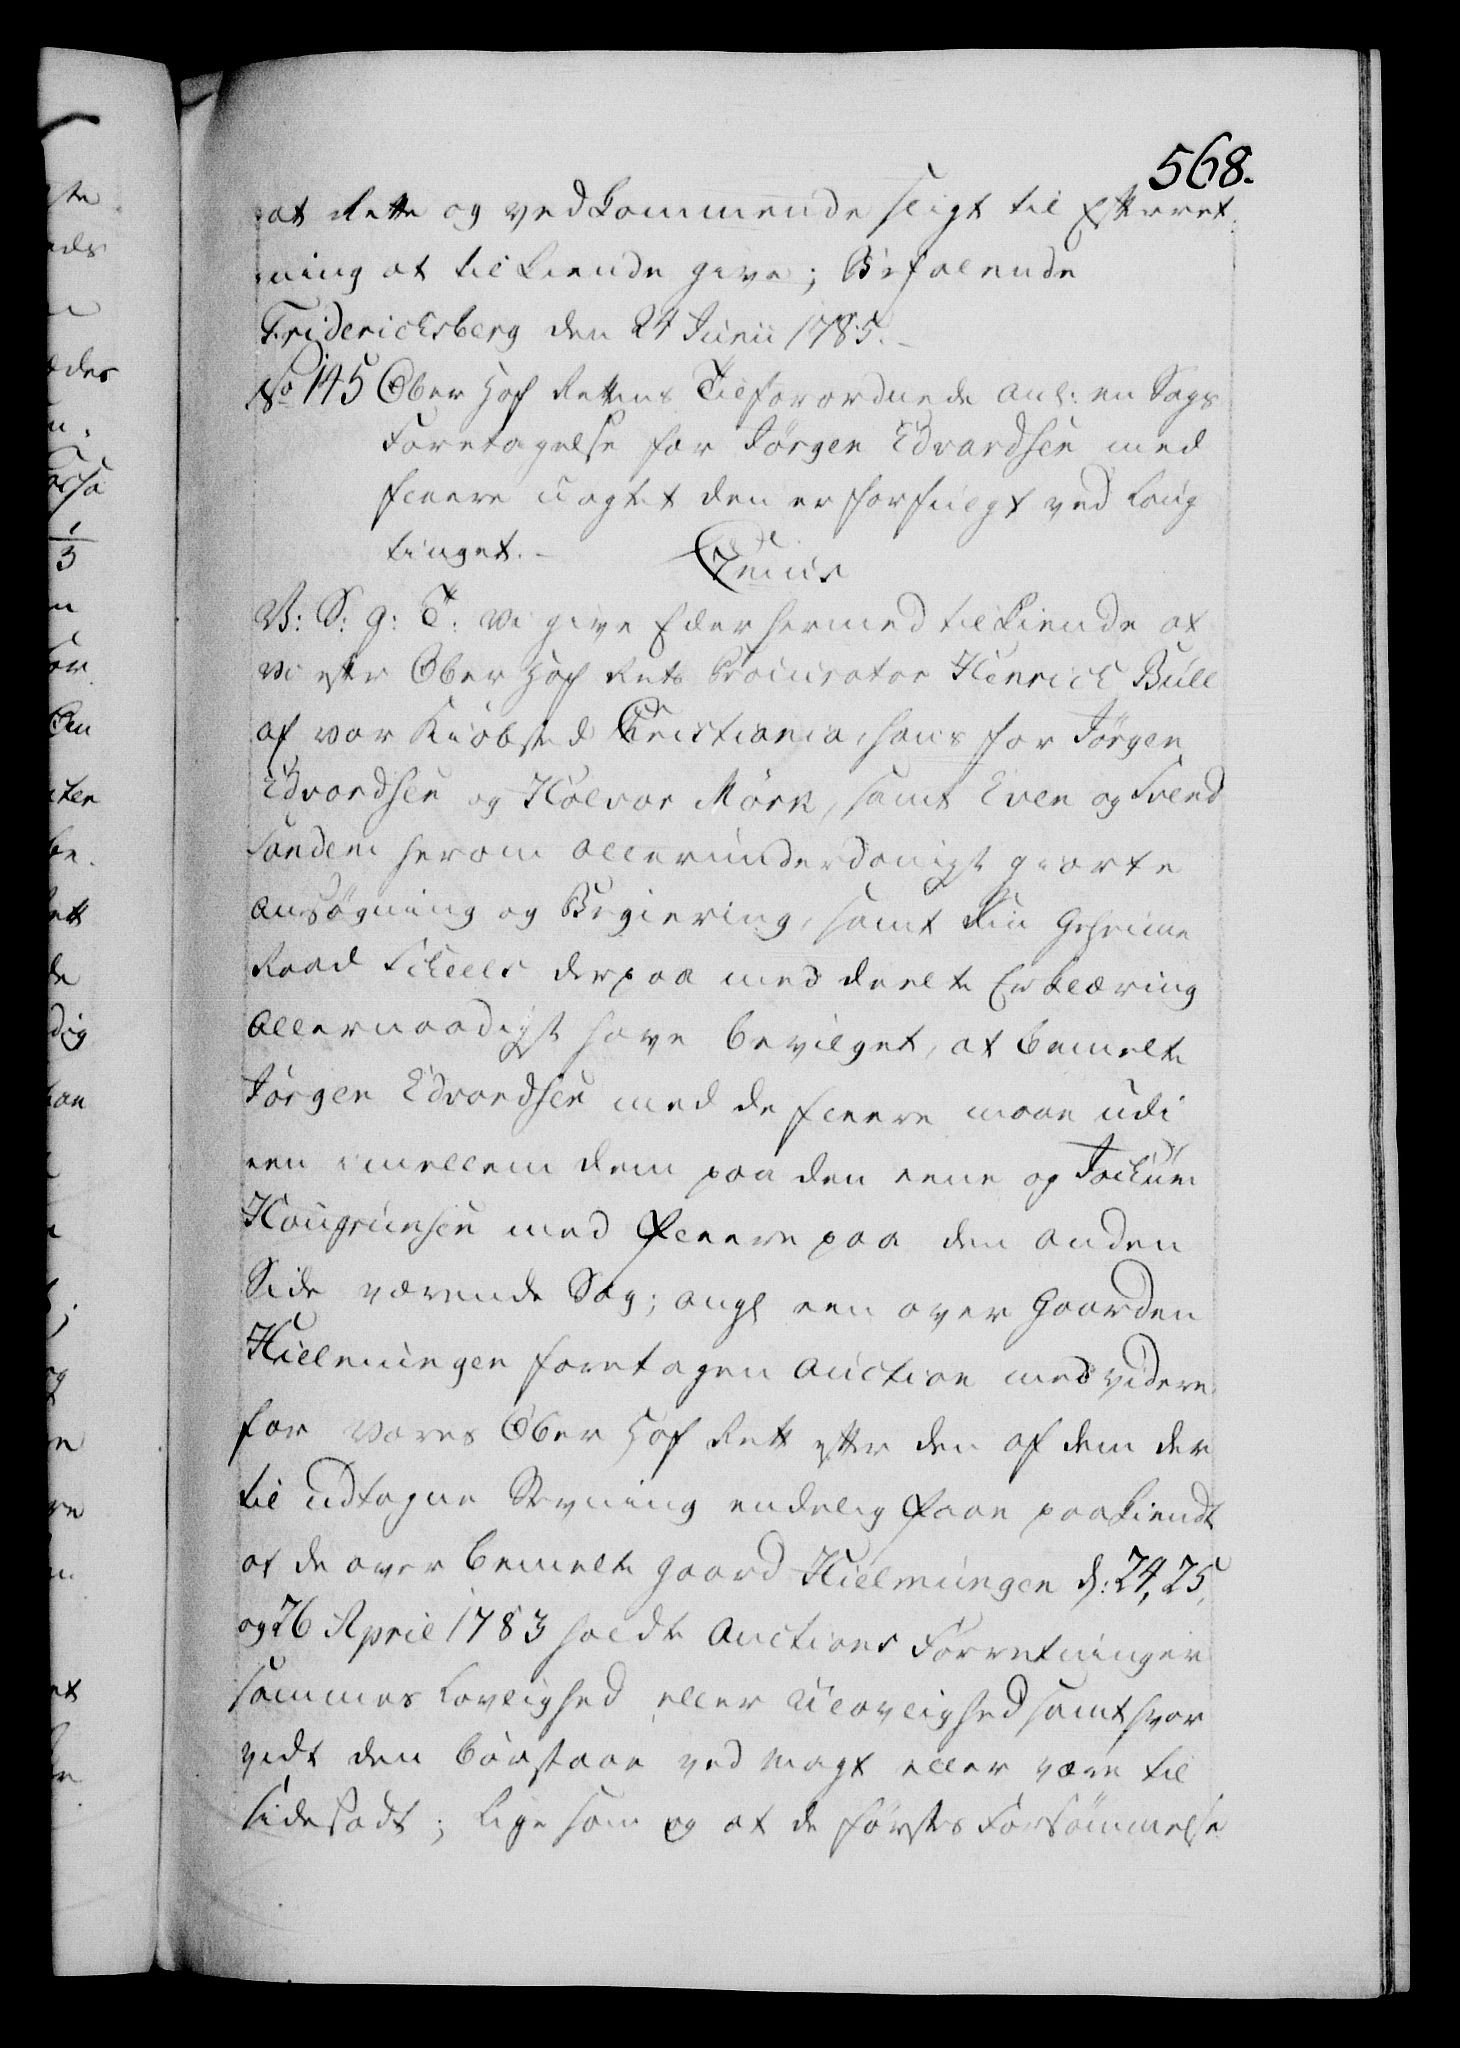 568.
at Rette og vedkommende sligt til Efterret-
ning at tilkiende give; Befalende
Friderichsberg den 24 Junii 1785.
No 145 Ober Hof Rettens Tilforordnede anl: en Sags
Foretagelse for Jörgen Edvardsen med
fleere uagtet den er forfulgt ved Laug
tinget.
C 7mus
V: S: g: T: Vi give Eder hermed tilkiende at
vi eftr Ober Hof Rets Procurator Henrich Bull
af vor Kiöbsted Christiania, hans for Jörgen
Edvardsen og Halvor Mörk, samt Even og Svend
Sanden herom allerunderdanigst giorte
Ansögning og Begiering, samt din Geheime
Raad Scheels derpaa meddeelte Erklæring
Allernaadigst have bevilget, at bemelte
Jörgen Edvardsen med de fleere maae udi
een imellem dem paa den eene og Jochum
Haugrunsen med fleere paa den anden
Side værende Sag; angl een over Gaarden
Hielmungen foretagen Auction med videre
for vores Ober Hof Rett eftr den af dem der
til udtagne Stevning endelig faae paakiendt
at de over bemelte gaard Hielmungen d: 24, 25,
og 26 April 1783 holdte Auctions Forretninger
sammes Lovlighed eller Ulovlighed samt hvor
vidt den bör staae ved magt eller være til
side sadt; lige som og at de förstes Forsömmelse